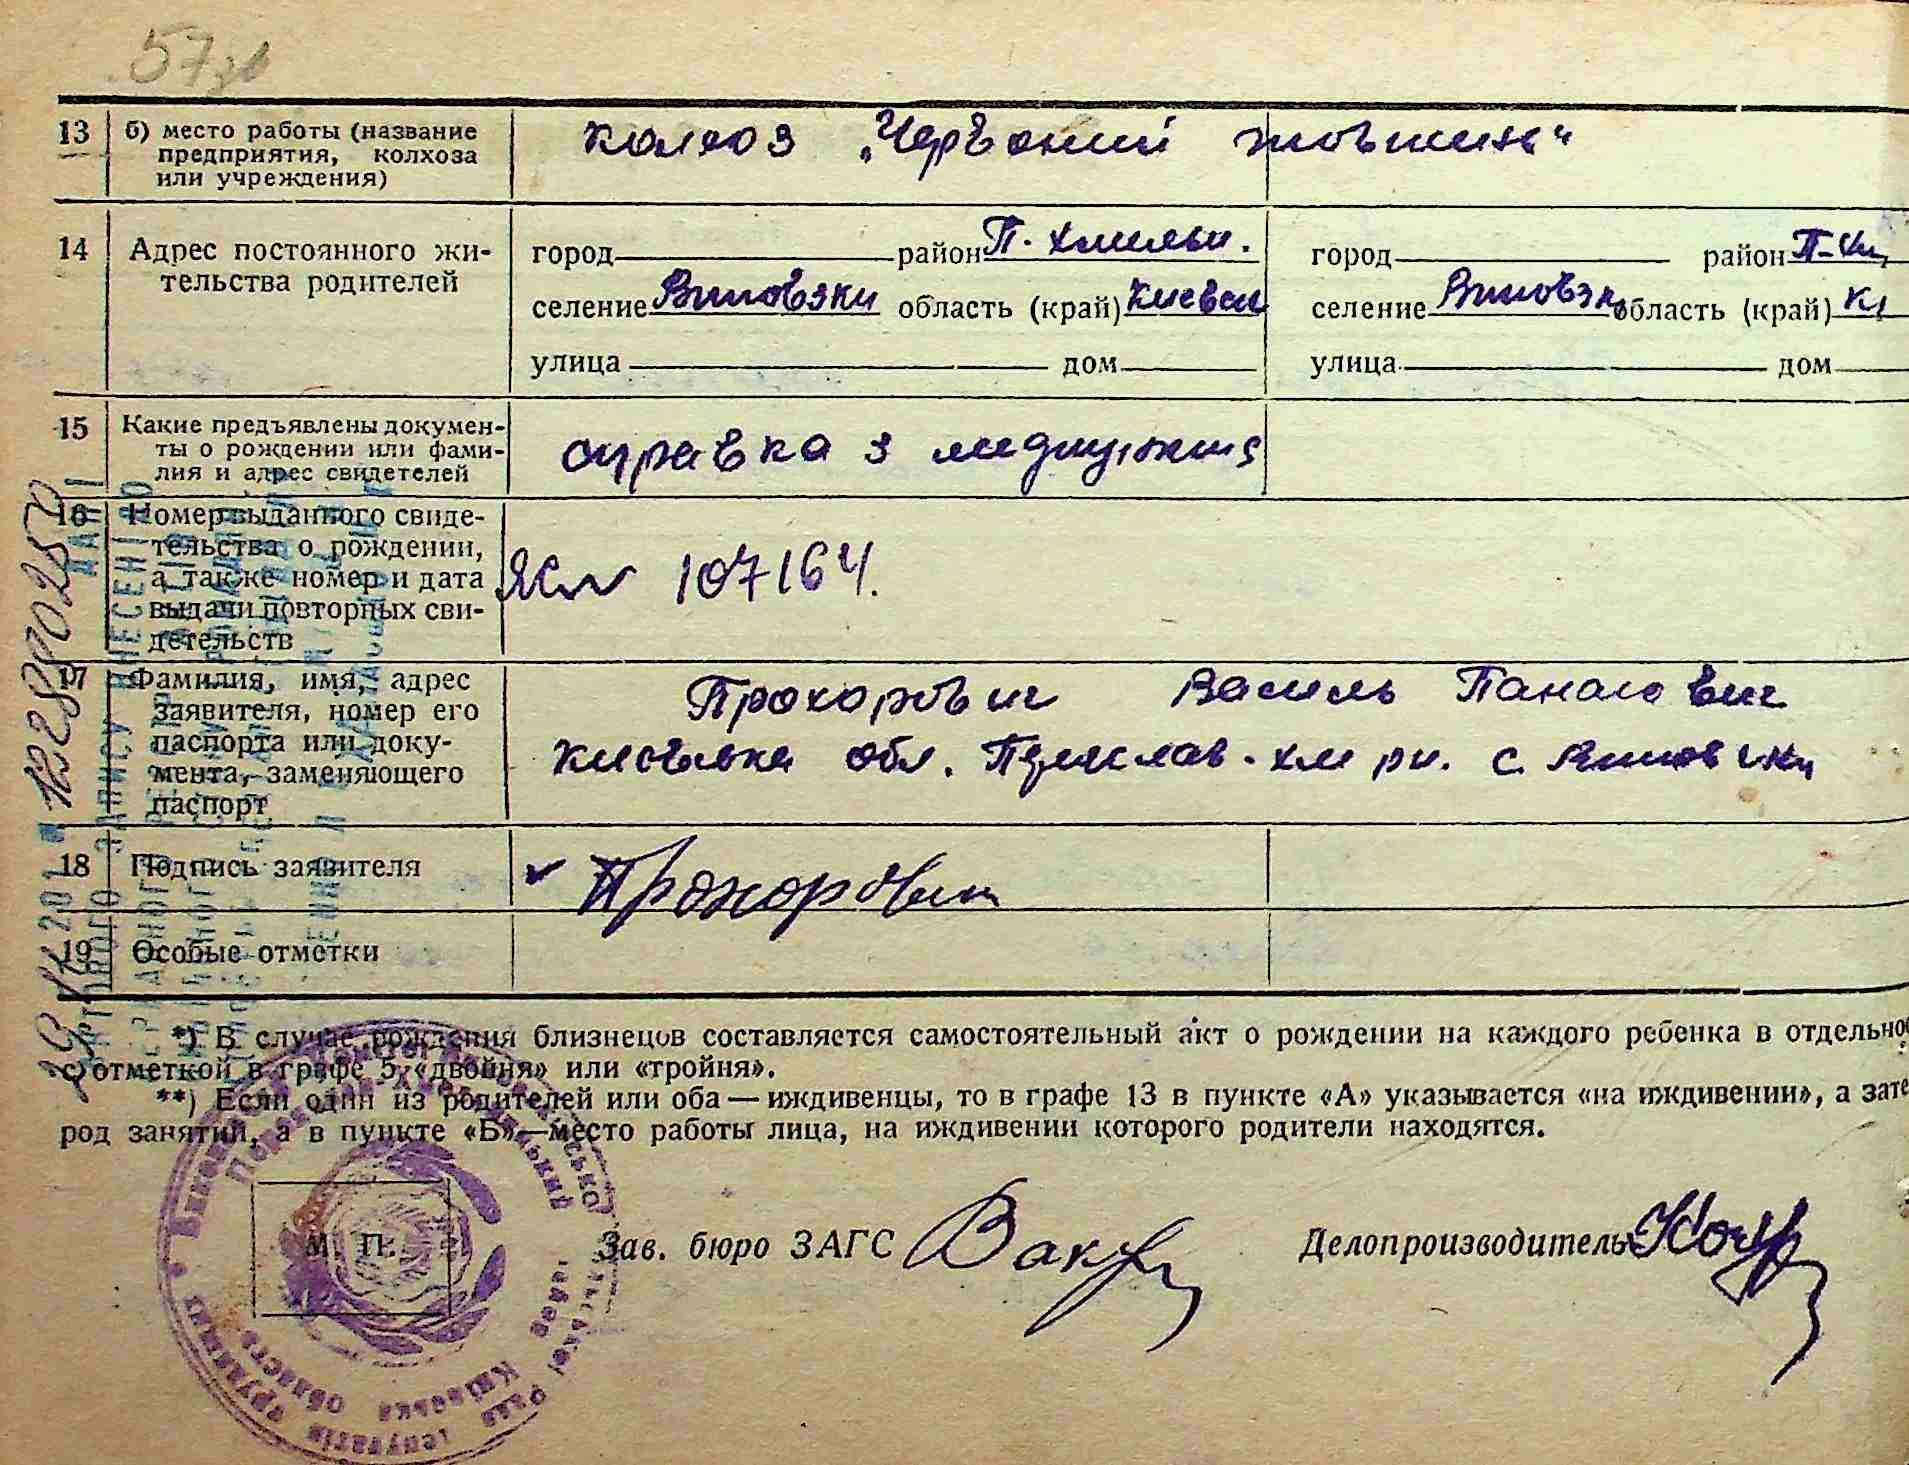 57зв
13 б) место работы (название
предприятия, колхоза
или учреждения)
колхоз „Червоний жовтень“
14 Адрес постоянного жи-
тельства родителей
город район П. Хмельн.
селение область (край) Києвск
улица дом
город район П-Хм
селение область (край) Кі
улица дом
15 Какие предъявлены докумен-
ты о рождении или фами-
лия и адрес свидетелей
справка з медпункта
16 Номер выданного свиде-
тельства о рождении,
а также номер и дата
выдачи повторных сви-
детельств
107164.
17 Фамилия, имя, адрес
заявителя, номер его
паспорта или доку-
мента, заменяющего
паспорт
Прохорович Василь Панасович
Київська обл. Переяслав-хм рн. с.
18 Подпись заявителя
Прохорович
19 Особые отметки
*) В случае рождения близнецов составляется самостоятельный акт о рождении на каждого ребенка в отдельнос
с отметкой в графе 5 «двойня» или «тройня».
**) Если один из родителей или оба — иждивенцы, то в графе 13 в пункте «А» указывается «на иждивении», а зате
род занятий, а в пункте «Б»—место работы лица, на иждивении которого родители находятся.
М. П.
Зав. бюро ЗАГС
Делопроизводитель
Київська область